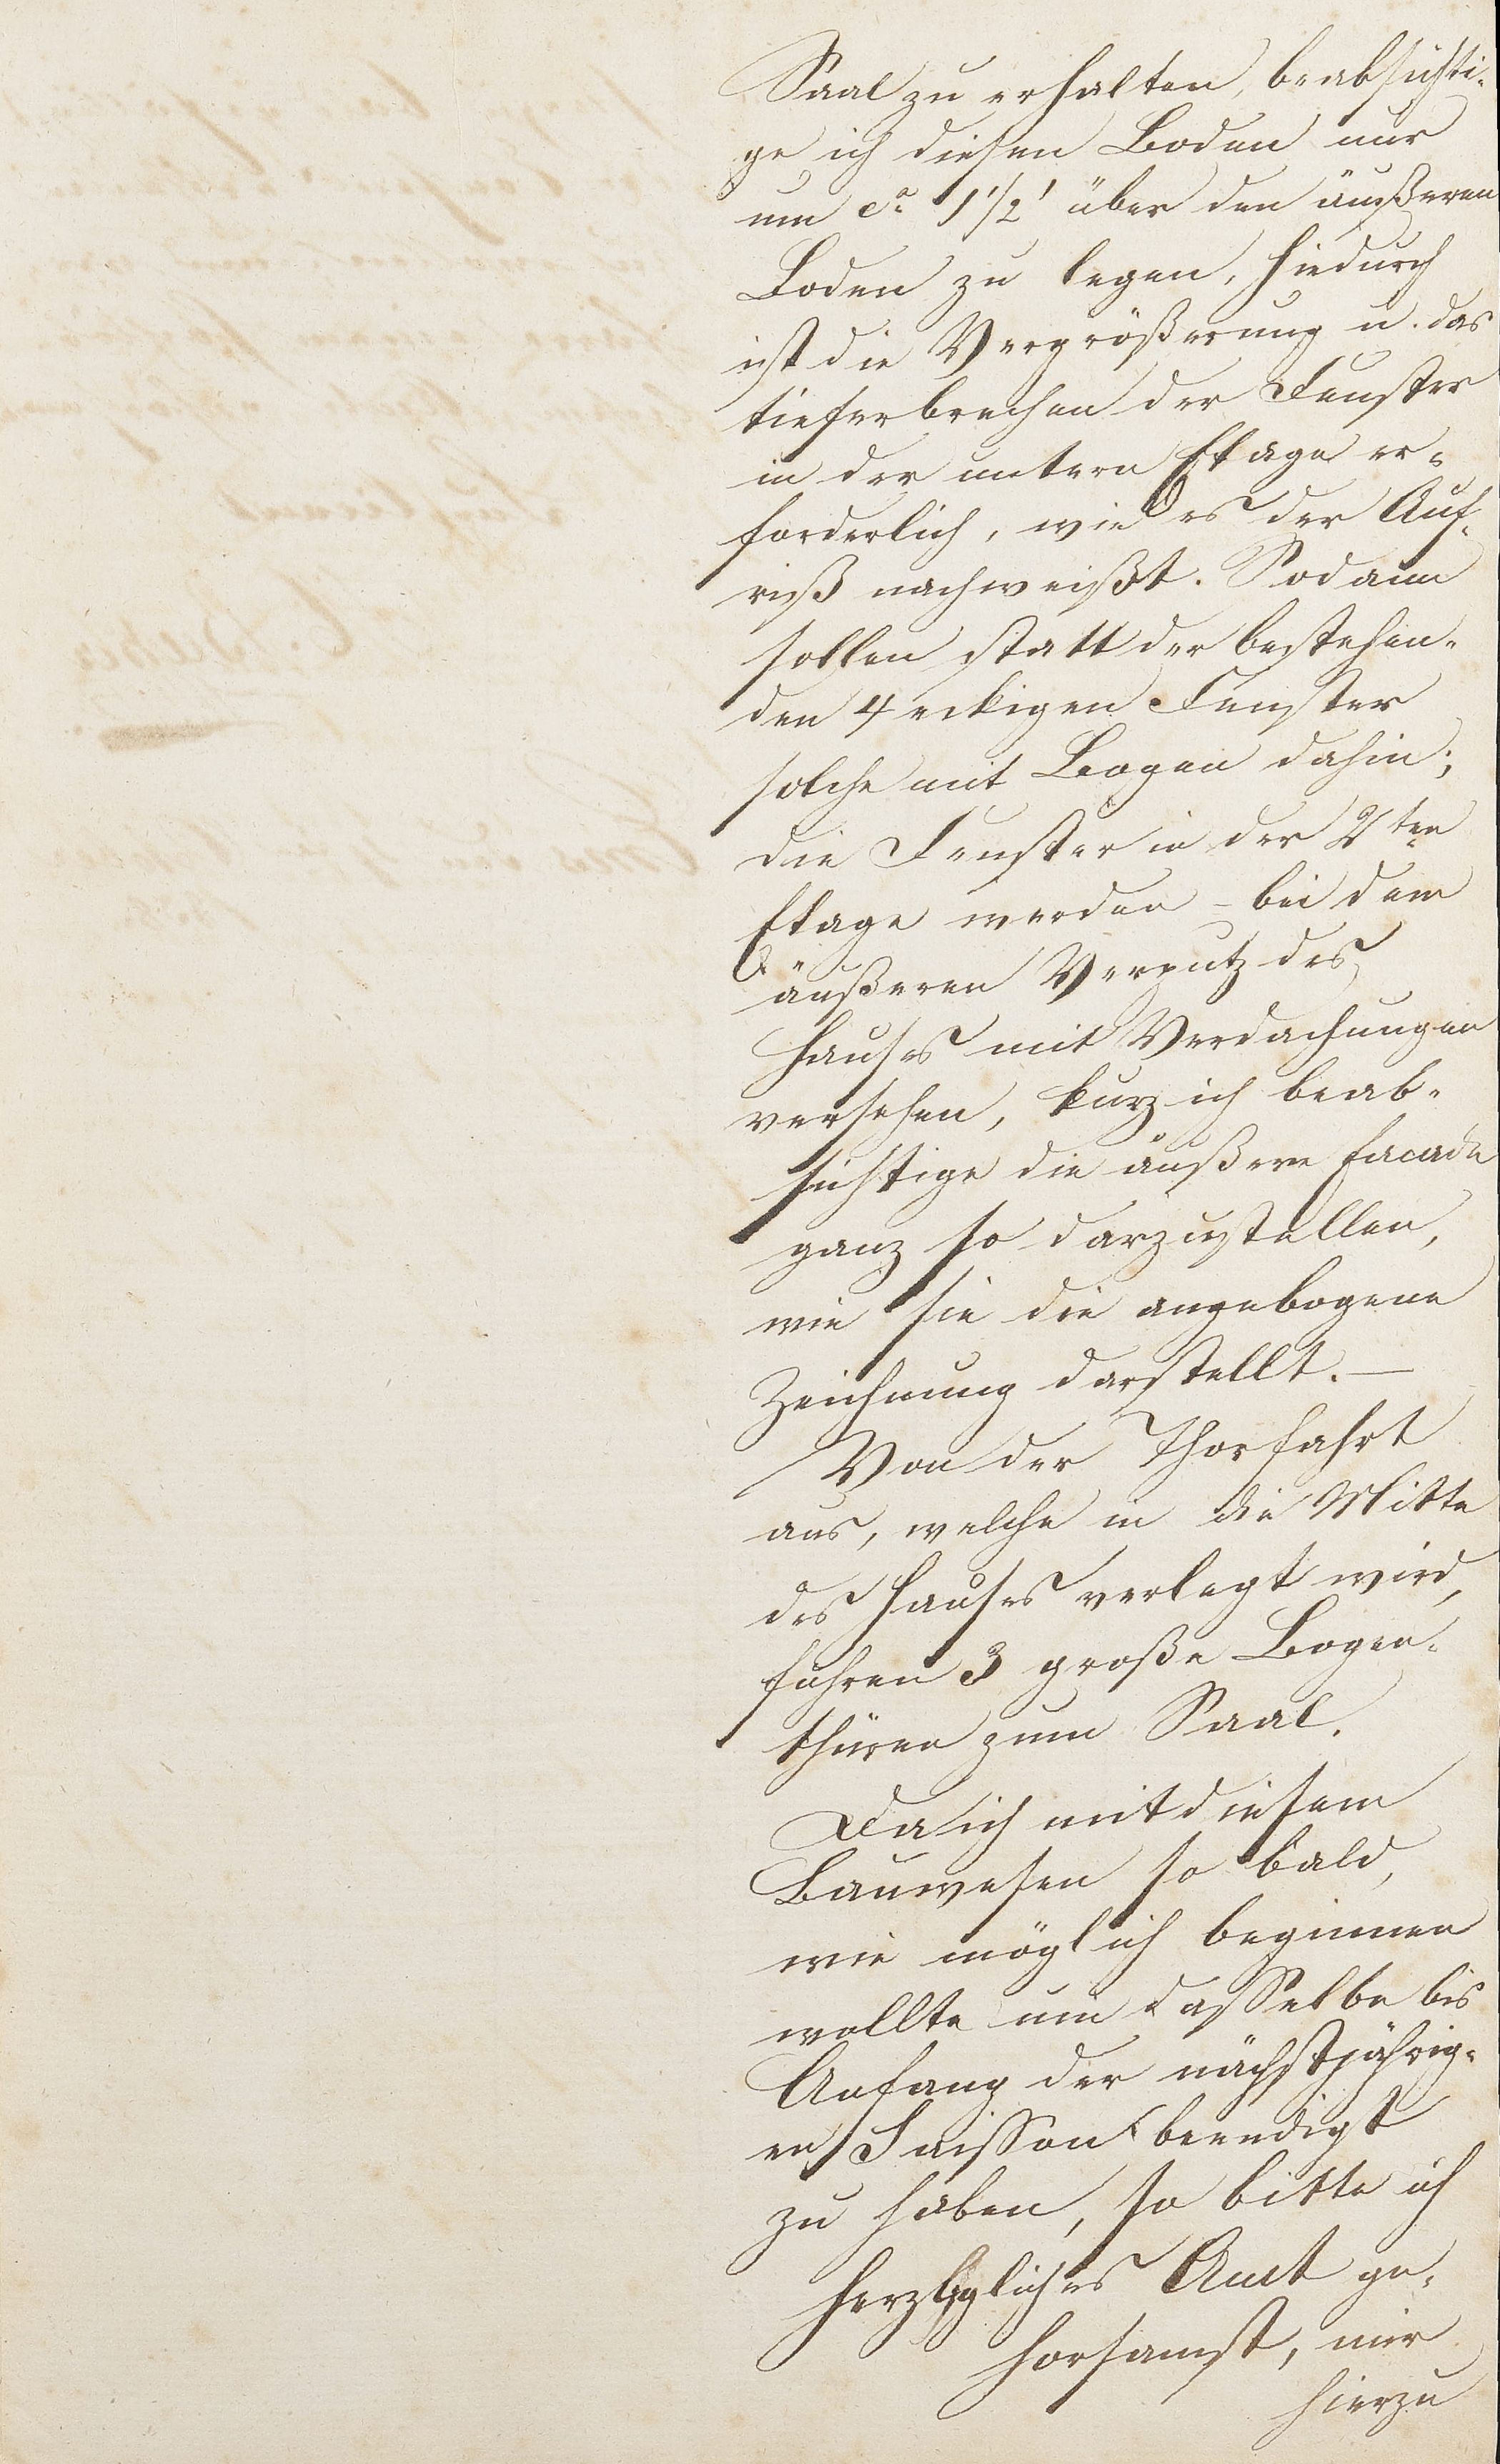 Saal zu erhalten, beabsichti-
ge ich diesen Boden nur
um ca 1 1/2' über den äußeren
Boden zu legen, hiedurch
ist die Vergrößerung u. das
tieferbrechen der Fenster
in der untern Etage er-
forderlich, wie es der Auf-
riß nachweißt. Sodann
sollen statt der bestehen-
den 4 eckigen Fenster
solche mit Bogen dahin;
die Fenster in der 2ten
Etage werden - bei dem
äußeren Verputz des
Hauses mit Verdachungen
versehen, kurz ich beab-
sichtige die äußere Facade
ganz so darzustellen,
wie sie die angebogene
Zeichnung darstellt. —
Von der Thorfahrt
aus, welche in die Mitte
des Hauses verlegt wird,
fuhren 3 große Bogen-
thüren zum Saal.
Da ich mit diesem
Bauwesen so bald,
wie möglich beginnen
wollte um dasselbe bis
Anfang der nächstjährig-
en Saisson beendigt
zu haben, so bitte ich
Herzogliches Amt ge-
horsamst, mir
hierzu